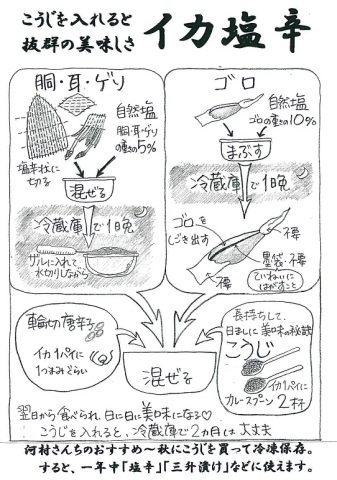 こうじを入れると
抜群の美味しさ
イカ塩辛
胴・耳・ゲソ
自然塩
胴・耳・ゲソ
の重さの5%
塩辛状に
切る
混ぜる
冷蔵庫で1晩
ザルに入れて
水切りしながら
ゴロ
自然塩
ゴロの重さの10%
まぶす
冷蔵庫で1晩
ゴロを
しごき出す
不要
墨袋・不要
不要
ていねいに
はがすこと
輪切唐辛子
イカ1パイに
1つまみぐらい
混ぜる
長持ちして、
日ましに美味の秘訣
こうじ
イカ1パイに
カレースプーン2杯
翌日から食べられ、日に日に美味になる♡
こうじを入れると、冷蔵庫で2カ月は大丈夫
河村さんちのおすすめ～秋にこうじを買って冷凍保存。
すると、一年中「塩辛」「三升漬け」などに使えます。